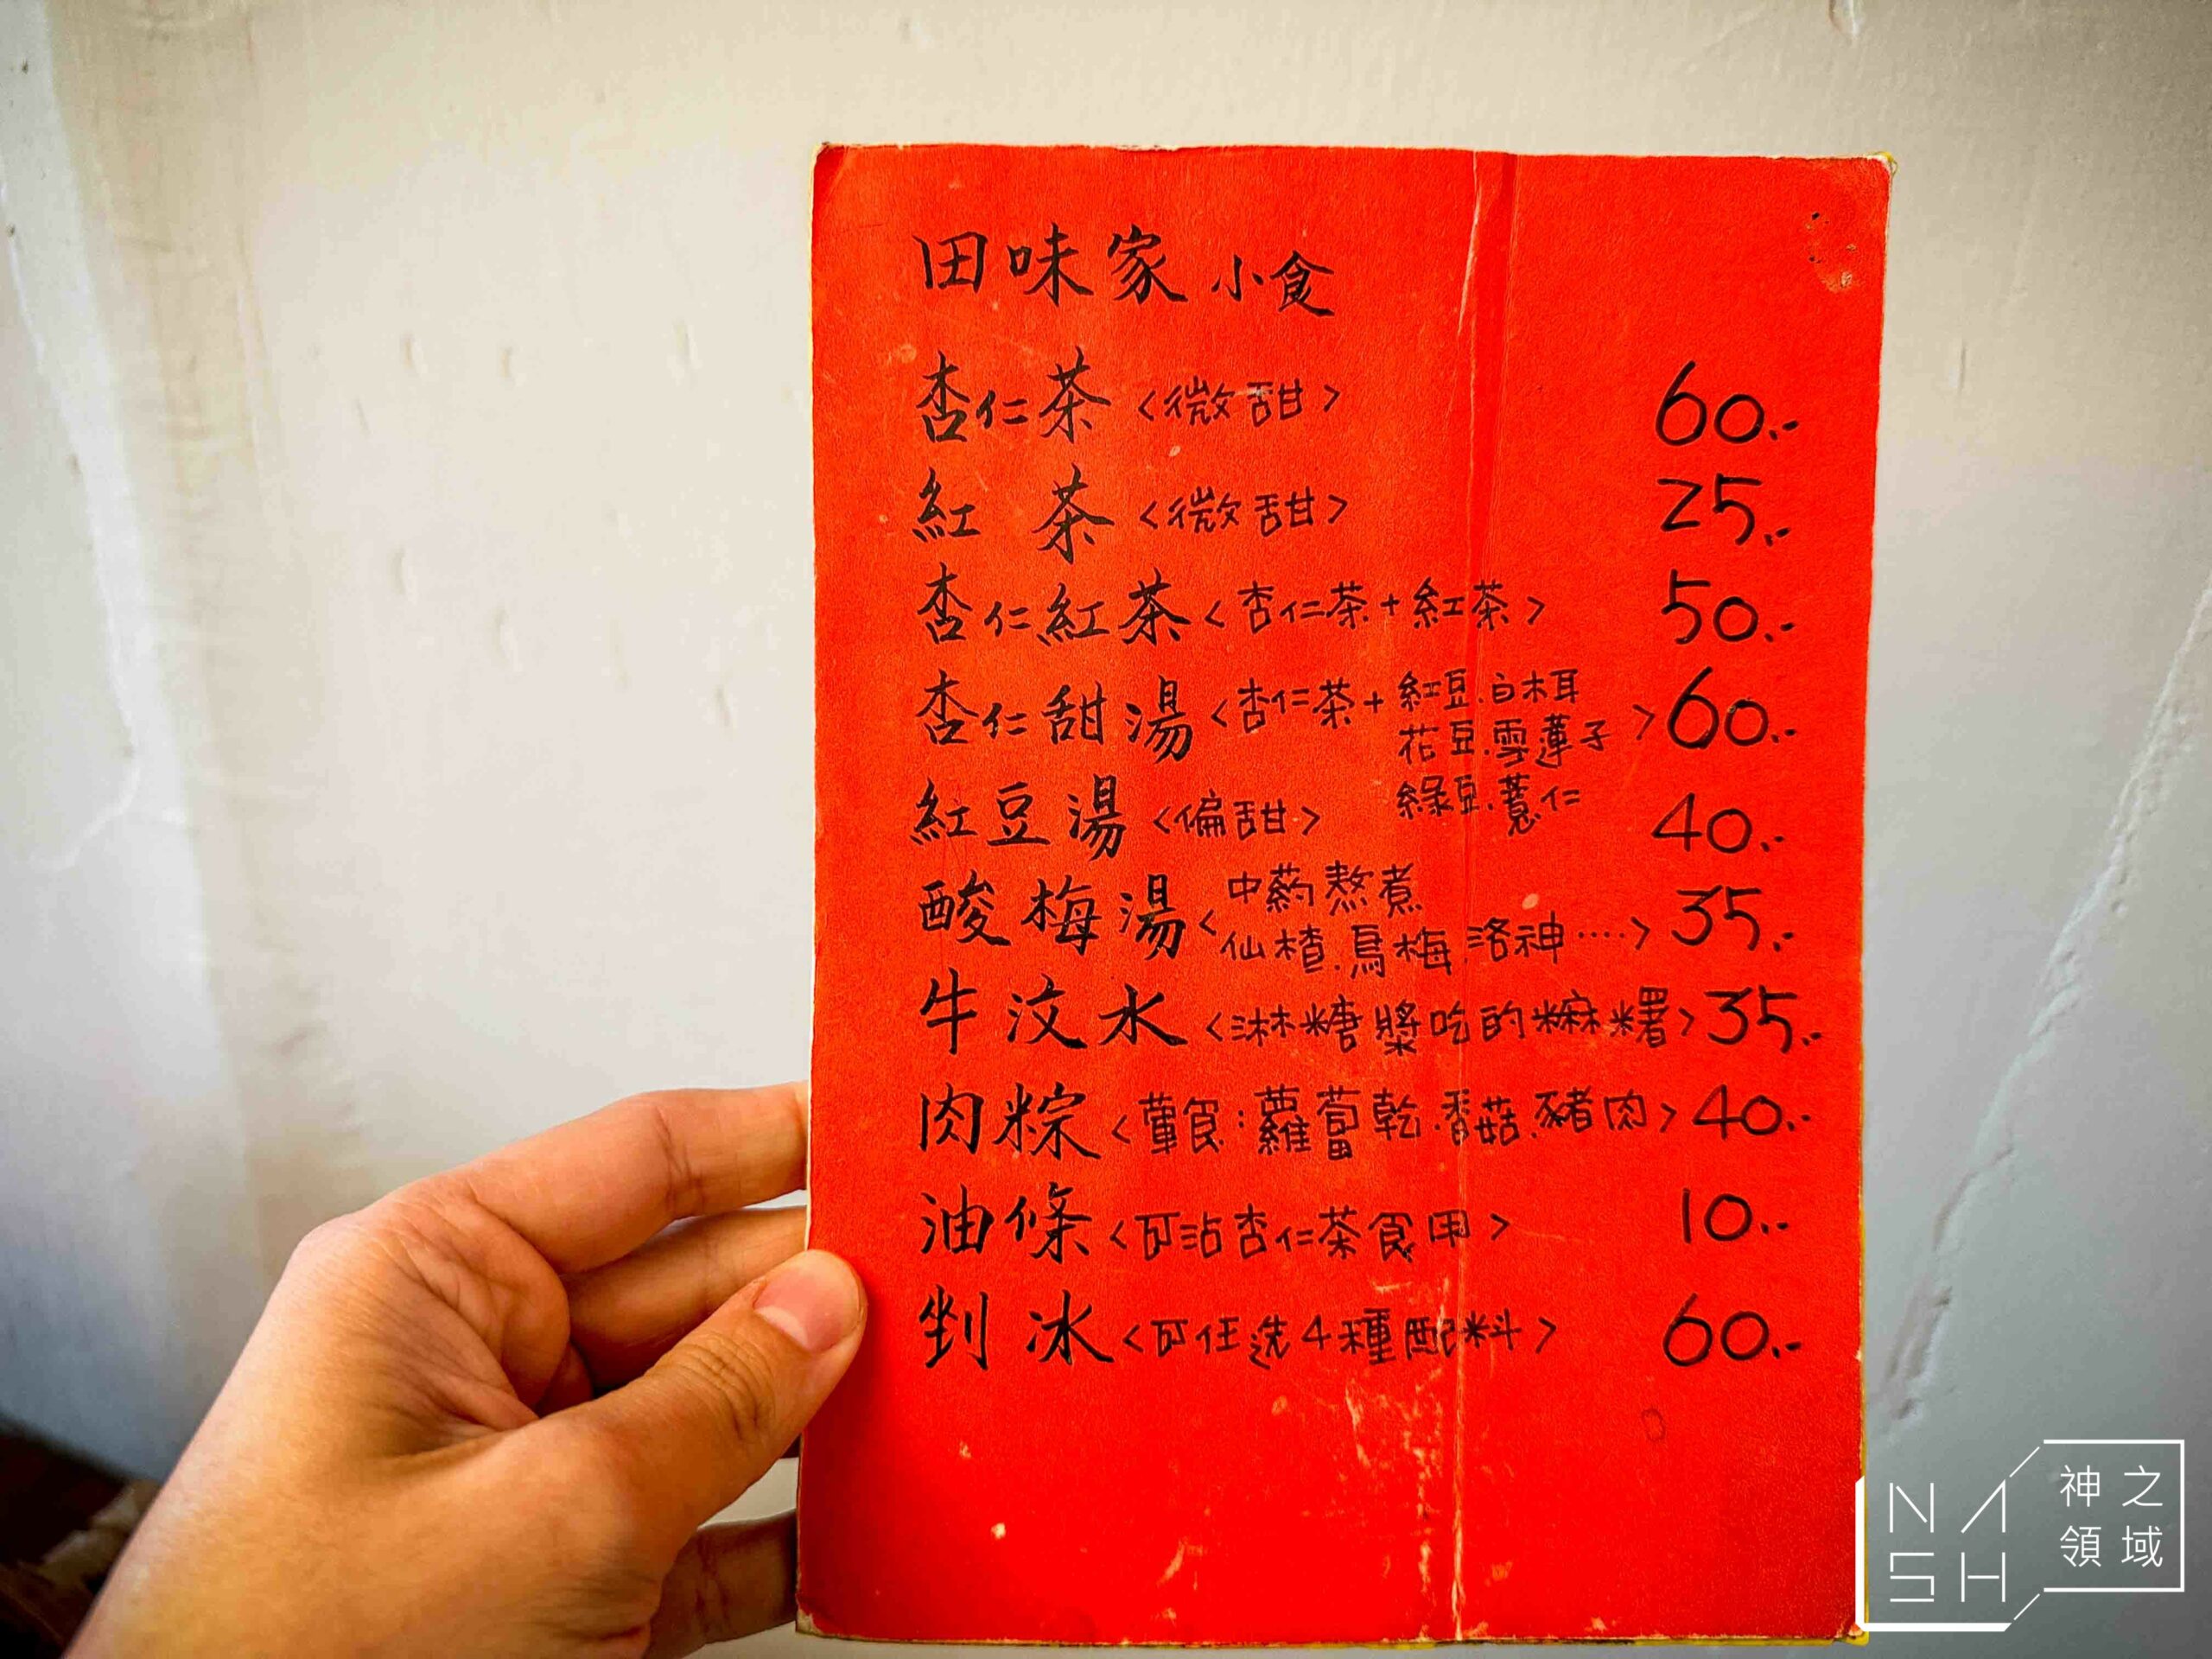 田味家 小食
杏仁茶 <微甜> 60.-
紅 茶 <微甜> 25.-
杏仁紅茶 <杏仁茶+紅茶> 50.-
杏仁甜湯 <杏仁茶+紅豆.白木耳
花豆.雪蓮子> 60.-
綠豆.薏仁
紅豆湯 <偏甜> 40.-
酸梅湯 <中葯熬煮
仙楂.烏梅.洛神....> 35.-
牛汶水 <淋糖漿吃的糜糬> 35.-
肉粽 <葷食:蘿蔔乾.香菇.豬肉> 40.-
油條 <可沾杏仁茶食用> 10.-
剉冰 <可任选4種配料> 60.-
NASH
神之
領域